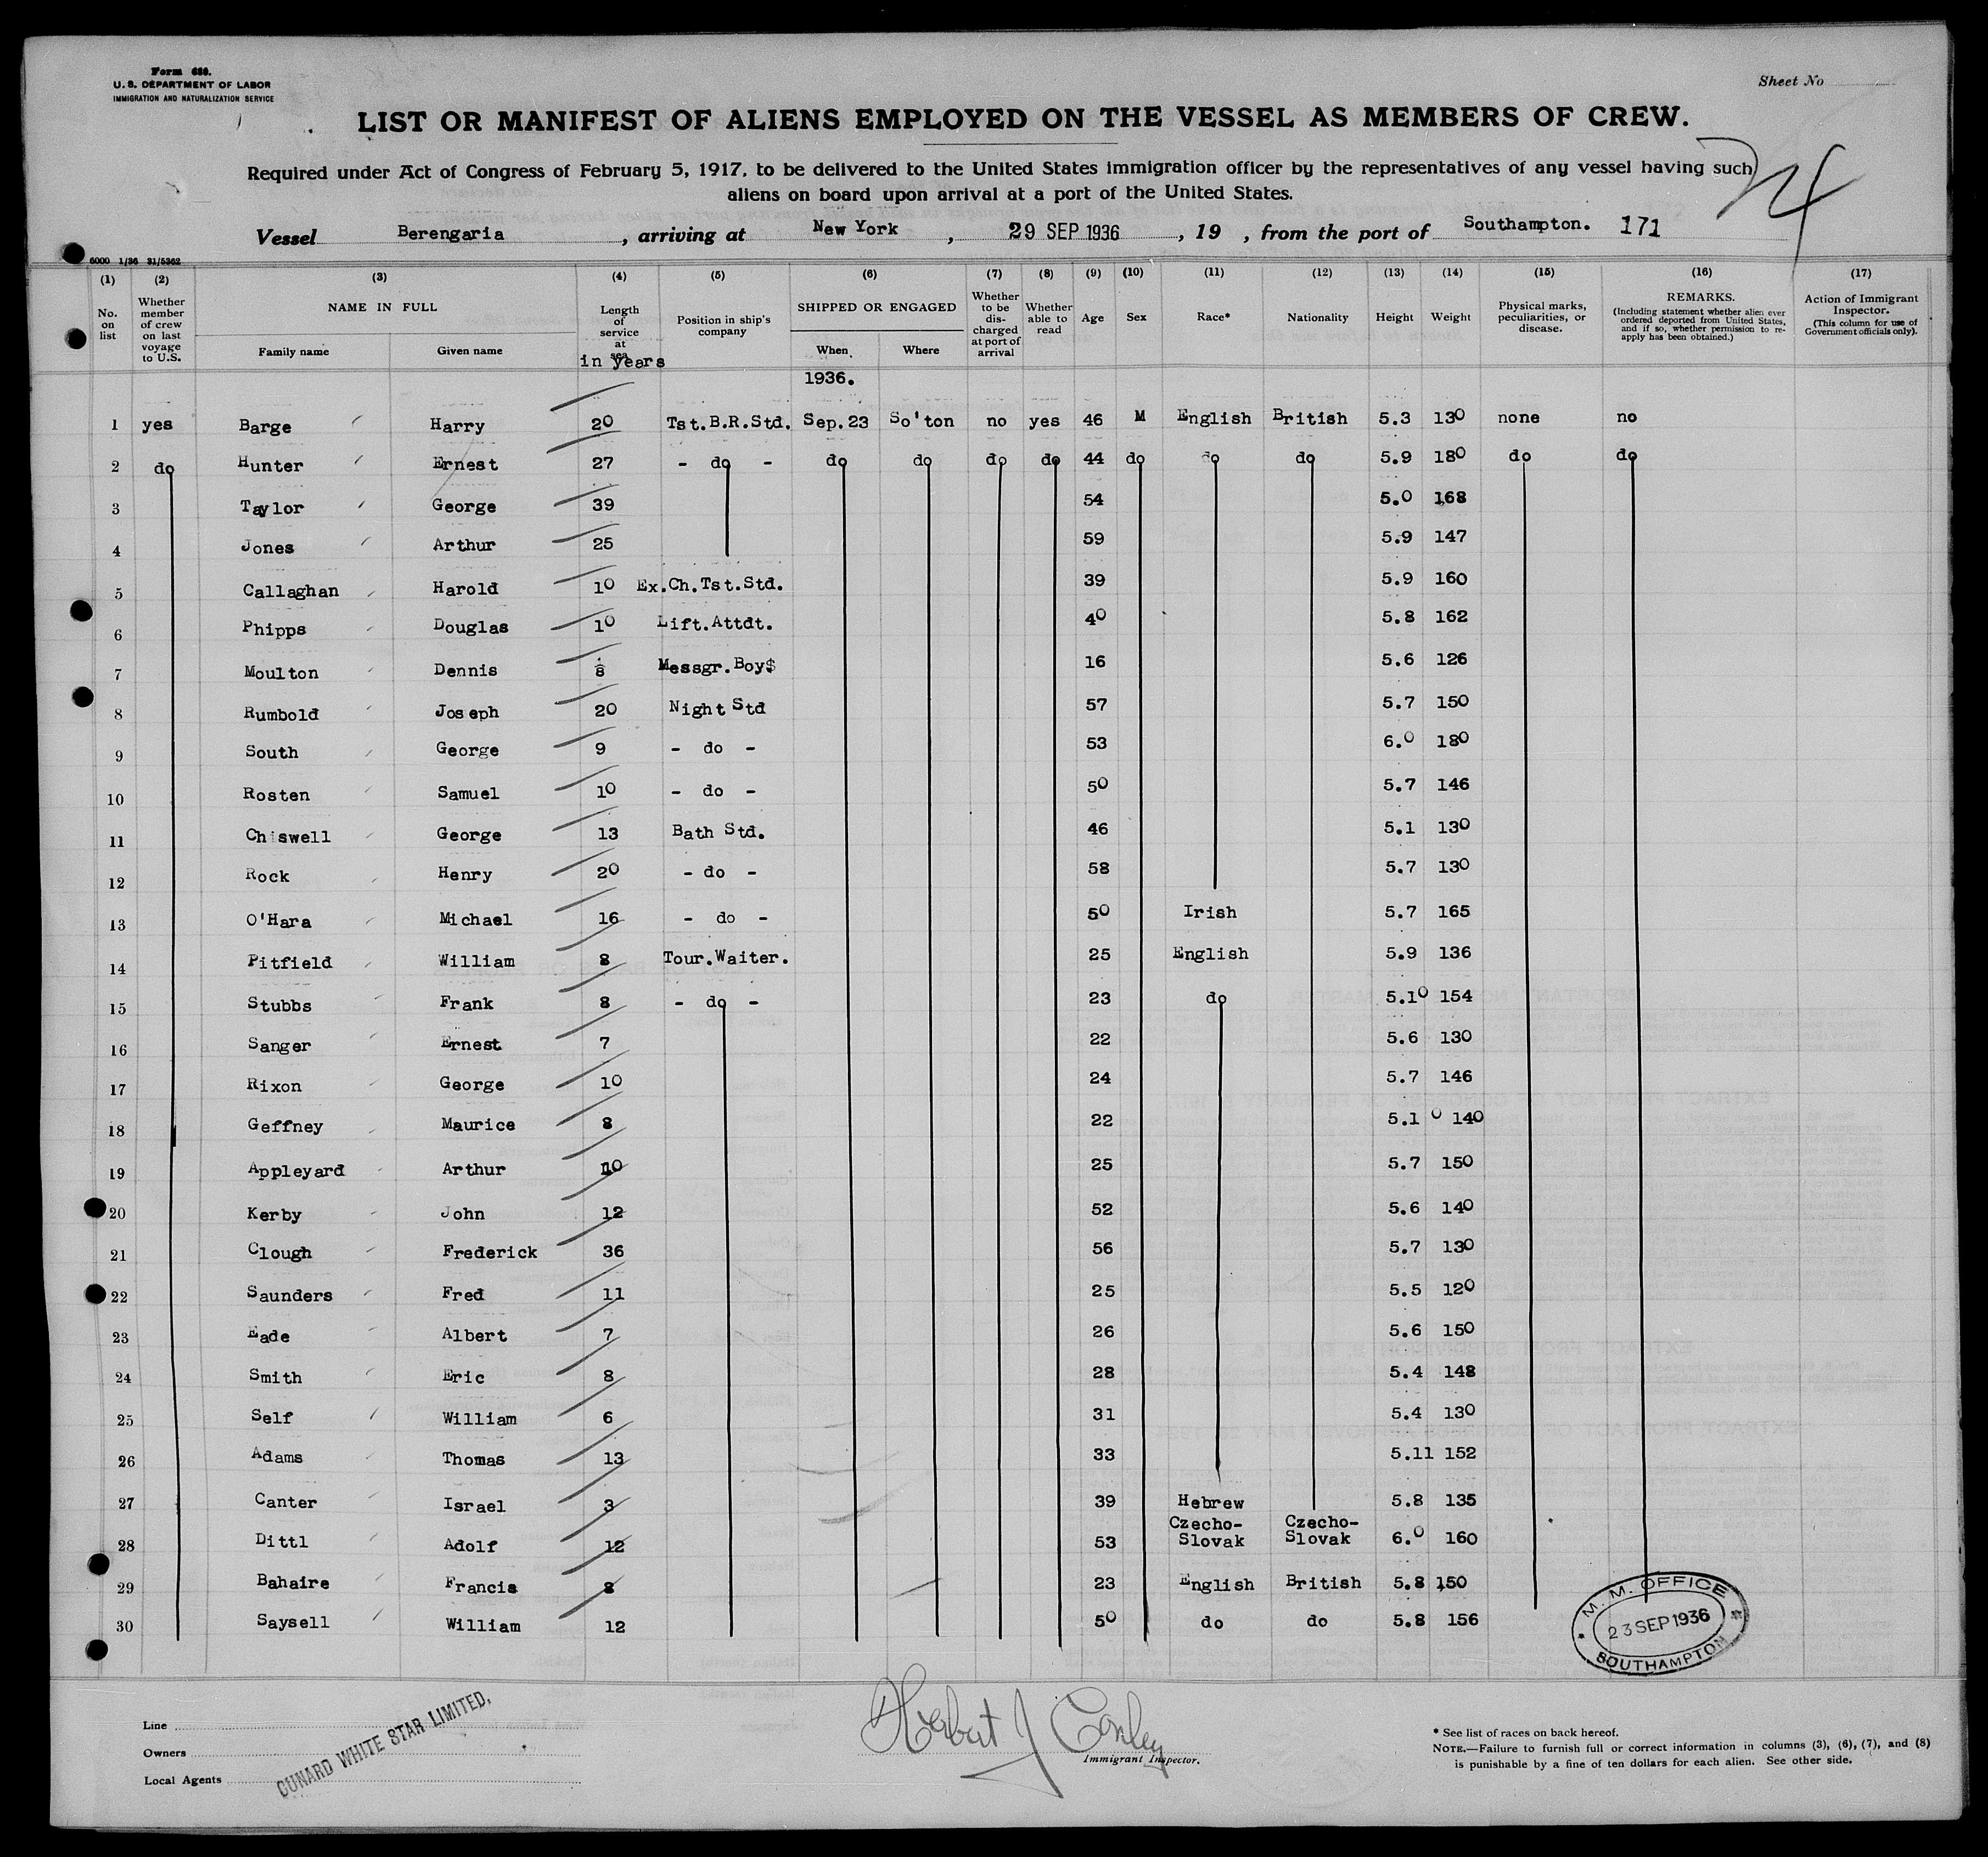 Form 680.
U. S. DEPARTMENT OF LABOR
IMMIGRATION AND NATURALIZATION SERVICE
Sheet No
LIST OR MANIFEST OF ALIENS EMPLOYED ON THE VESSEL AS MEMBERS OF CREW.
Required under Act of Congress of February 5, 1917, to be delivered to the United States immigration officer by the representatives of any vessel having such
aliens on board upon arrival at a port of the United States.
Vessel Berengaria , arriving at New York , 29 SEP 1936 , 19 , from the port of Southampton. 171
6000 1/36 31/5362
(1) (2) (3) (4) (5) (6) (7) (8) (9) (10) (11) (12) (13) (14) (15) (16) (17)
No. on list Whether member of crew on last voyage to U.S. NAME IN FULL Family name Given name Length of service at sea in years Position in ship's company SHIPPED OR ENGAGED When Where Whether to be discharged at port of arrival Whether able to read Age Sex Race* Nationality Height Weight Physical marks, peculiarities, or disease. REMARKS. (Including statement whether alien ever ordered deported from United States, and if so, whether permission to reapply has been obtained.) Action of Immigrant Inspector. (This column for use of Government officials only).
1936.
1 yes Barge Harry 20 Tst.B.R.Std. Sep.23 So'ton no yes 46 M English British 5.3 130 none no
2 do Hunter Ernest 27 - do - do do do do 44 do do do 5.9 180 do do
3 Taylor George 39 54 5.0 168
4 Jones Arthur 25 59 5.9 147
5 Callaghan Harold 10 Ex.Ch.Tst.Std. 39 5.9 160
6 Phipps Douglas 10 Lift.Attdt. 40 5.8 162
7 Moulton Dennis 8 Messgr.Boy$ 16 5.6 126
8 Rumbold Joseph 20 Night Std 57 5.7 150
9 South George 9 - do - 53 6.0 180
10 Rosten Samuel 10 - do - 50 5.7 146
11 Chiswell George 13 Bath Std. 46 5.1 130
12 Rock Henry 20 - do - 58 5.7 130
13 O'Hara Michael 16 - do - 50 Irish 5.7 165
14 Pitfield William 8 Tour.Waiter. 25 English 5.9 136
15 Stubbs Frank 8 - do - 23 do 5.10 154
16 Sanger Ernest 7 22 5.6 130
17 Rixon George 10 24 5.7 146
18 Geffney Maurice 8 22 5.10 140
19 Appleyard Arthur 10 25 5.7 150
20 Kerby John 12 52 5.6 140
21 Clough Frederick 36 56 5.7 130
22 Saunders Fred 11 25 5.5 120
23 Eade Albert 7 26 5.6 150
24 Smith Eric 8 28 5.4 148
25 Self William 6 31 5.4 130
26 Adams Thomas 13 33 5.11 152
27 Canter Israel 3 39 Hebrew 5.8 135
28 Dittl Adolf 12 53 Czecho-Slovak Czecho-Slovak 6.0 160
29 Bahaire Francis 8 23 English British 5.8 150
30 Saysell William 12 50 do do 5.8 156
M. M. OFFICE
23 SEP 1936
SOUTHAMPTON
Line
Owners
Local Agents
CUNARD WHITE STAR LIMITED,
Herbert J Conley
Immigrant Inspector.
* See list of races on back hereof.
NOTE.—Failure to furnish full or correct information in columns (3), (6), (7), and (8)
is punishable by a fine of ten dollars for each alien. See other side.